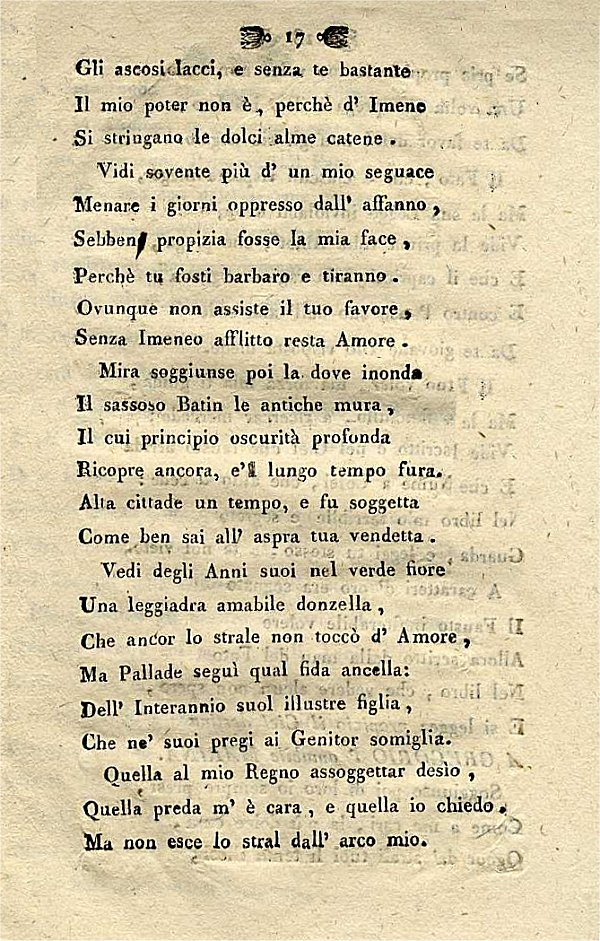 17
Gli ascosi lacci, e senza te bastante
Il mio poter non è, perchè d' Imene
Si stringano le dolci alme catene.
Vidi sovente più d' un mio seguace
Menare i giorni oppresso dall' affanno,
Sebben propizia fosse la mia face,
Perchè tu fosti barbaro e tiranno.
Ovunque non assiste il tuo favore,
Senza Imeneo afflitto resta Amore.
Mira soggiunse poi la dove inonda
Il sassoso Batin le antiche mura,
Il cui principio oscurità profonda
Ricopre ancora, e'l lungo tempo fura.
Alta cittade un tempo, e fu soggetta
Come ben sai all' aspra tua vendetta.
Vedi degli Anni suoi nel verde fiore
Una leggiadra amabile donzella,
Che ancor lo strale non toccò d' Amore,
Ma Pallade seguì qual fida ancella:
Dell' Interannio suol illustre figlia,
Che ne' suoi pregi ai Genitor somiglia.
Quella al mio Regno assoggettar desìo,
Quella preda m' è cara, e quella io chiedo.
Ma non esce lo stral dall' arco mio.